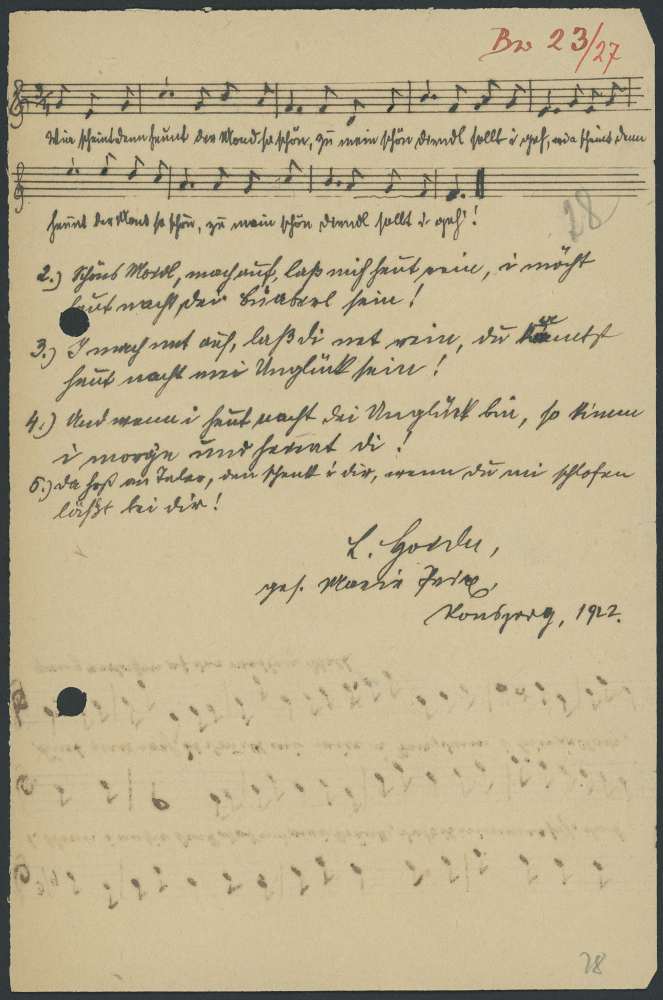 Br 23/27
Wia scheint denn heunt der Mond so schön, zu mein schön Dirndl sollt i geh, wia scheint denn
heunt der Mond so schön, zu mein schön Dirndl sollt i geh!
28
2.) Schöns Moidl, mach auf, laß mich heut rein, i möcht
heut nacht dei Buaberl sein!
3.) I mach net auf, laß di net rein, du
heut nacht mei Unglück sein!
4.) Und wenn i heut nacht dei Unglück bin, so kimm
i morgn und heirat di!
5.) Da host an Taler, den schenk i dir, wenn du mi schlofen
läßt bei dir!
L.
ges. Marie
Ronsperg, 1922.
28